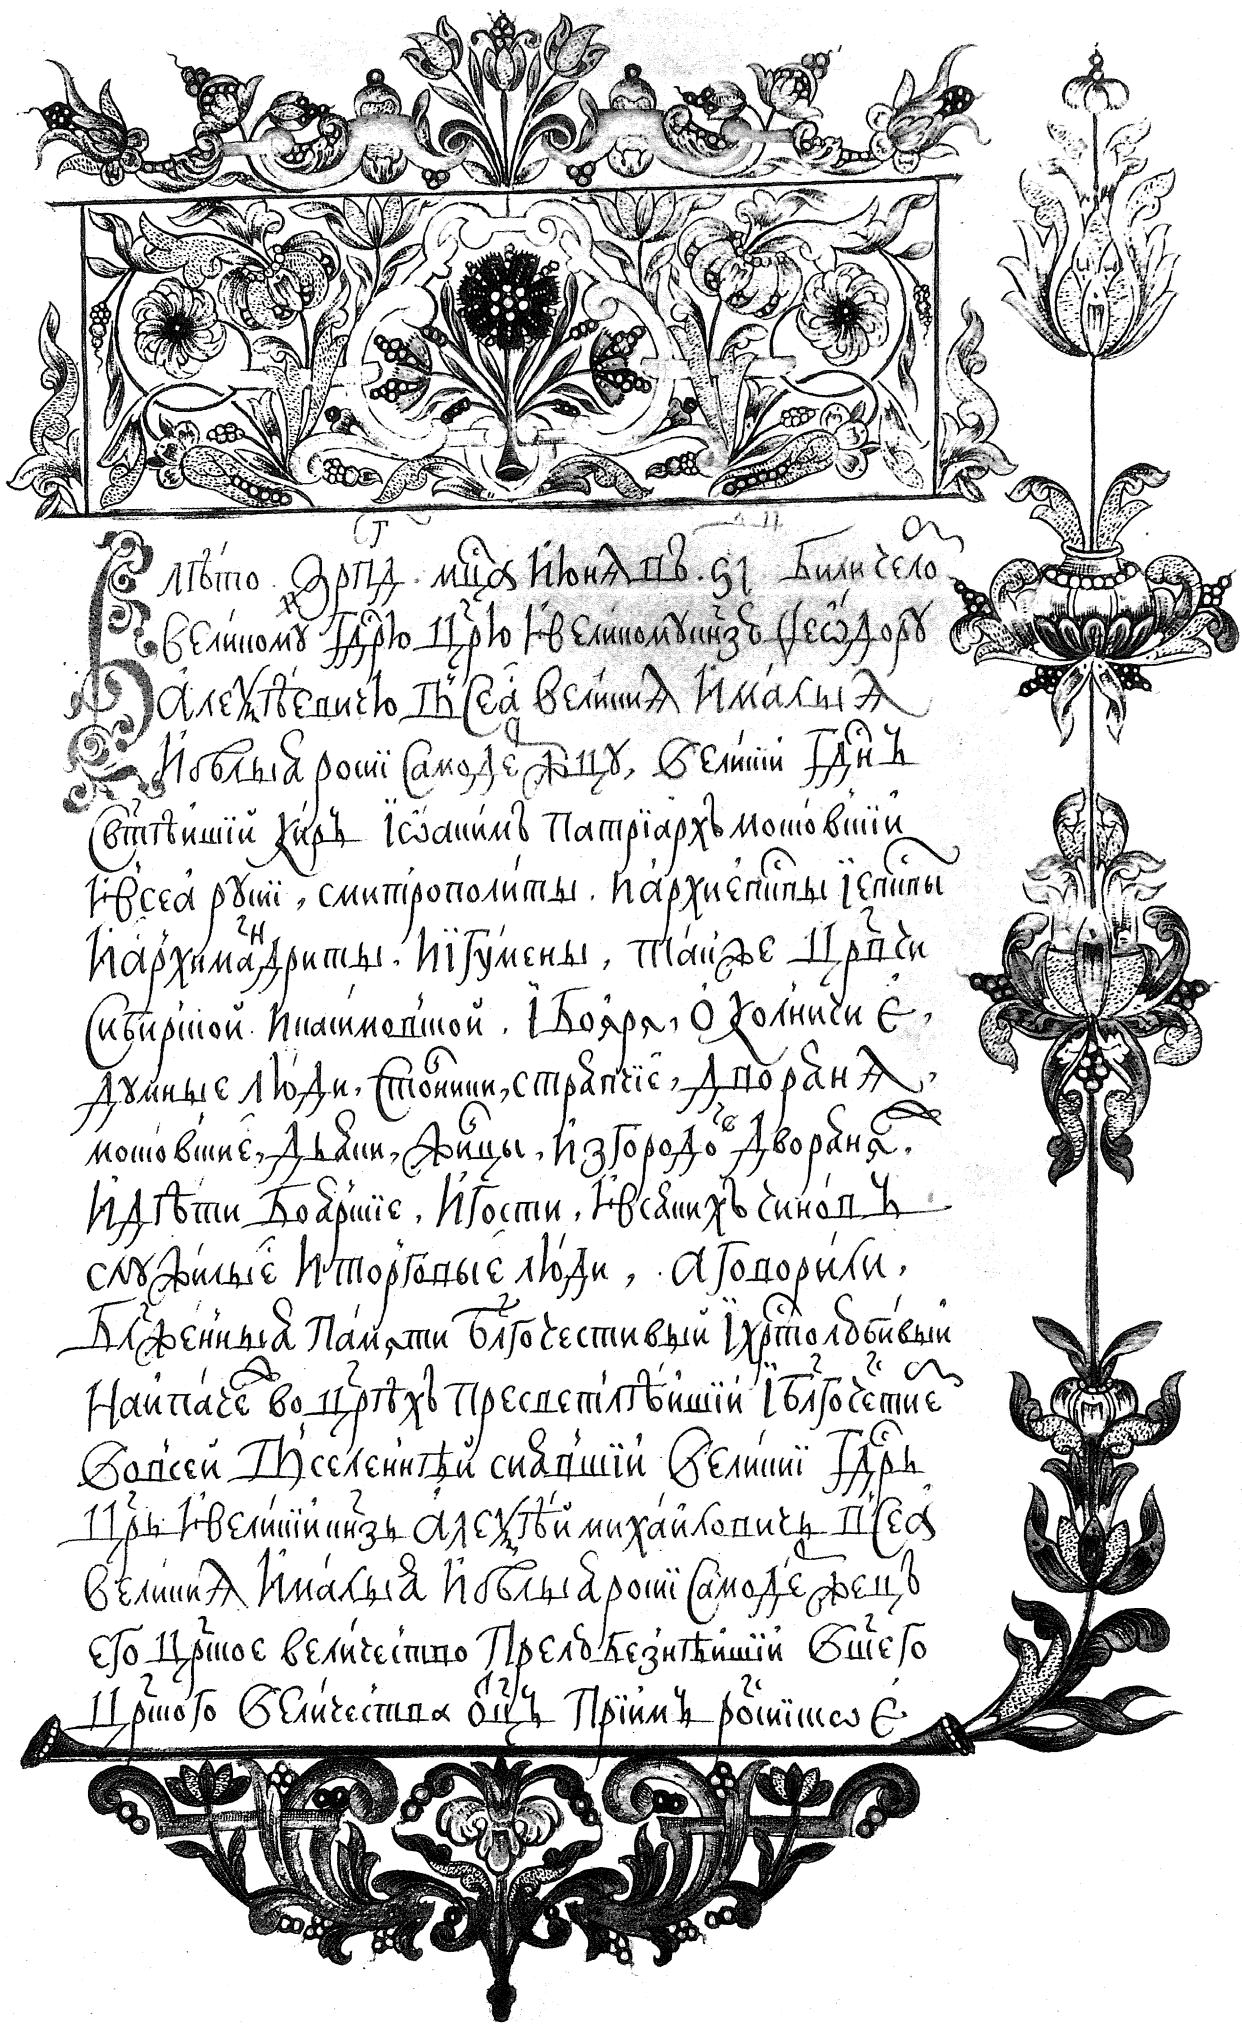 лѣто ҂зрпд мц҃а июня въ ѕі били челомъ
великому гдр҃ю цр҃ю и великому кнз҃ю ѳеѡдору
алеѯѣевичю всеа великия и малыя
и бѣлыя росиї самодержцу, великиї гдн҃ъ
свт҃ѣйшиї киръ їѡакимъ патрїархъ московскиї
и всеа русиї, с митрополиты. и архиепс҃пы ї епс҃пы
и архимандриты. и їгумены, также црв҃чи
сибирской и касимовской. ї бояря, околничиє,
думные люди, столники, стряпчиє, дворяня,
московскиє, дьяки, жилцы, из городовъ дворяня.
и дѣти боярскиє, и гости, и всякихъ чиновъ
служилыє и торговыє люди, а говорили,
блж҃енныя памяти блг҃очестивый ї хрс҃толюбивый
наипаче во цр҃ѣхъ пресвѣтлѣйшиї ї блг҃очестиемъ
во всей вселеннѣй сиявшиї великиї гдр҃ь
цр҃ь и великиї кнз҃ь алеѯѣй михайловичь всеа
великия и малыя и бѣлыя росиї самодержецъ
его црс҃кое величество прелюбезнѣйшиї вшего
црс҃кого величества оц҃ъ приимъ росиїскоє